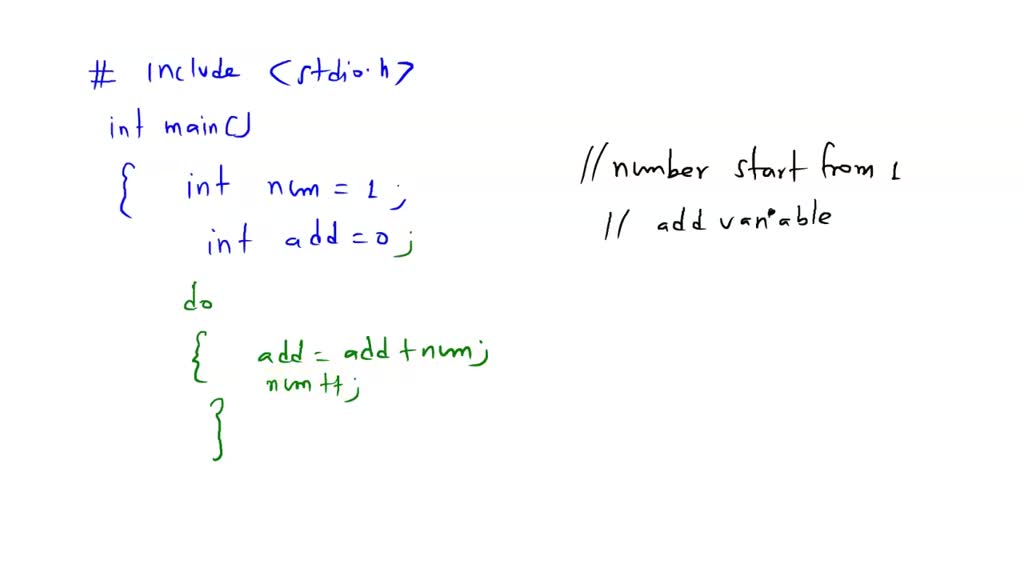 # include <stdio.h>
int main()
{ int num = 1; //number start from 1
int add = 0; // add variable
do
{ add = add + num;
num ++;
}